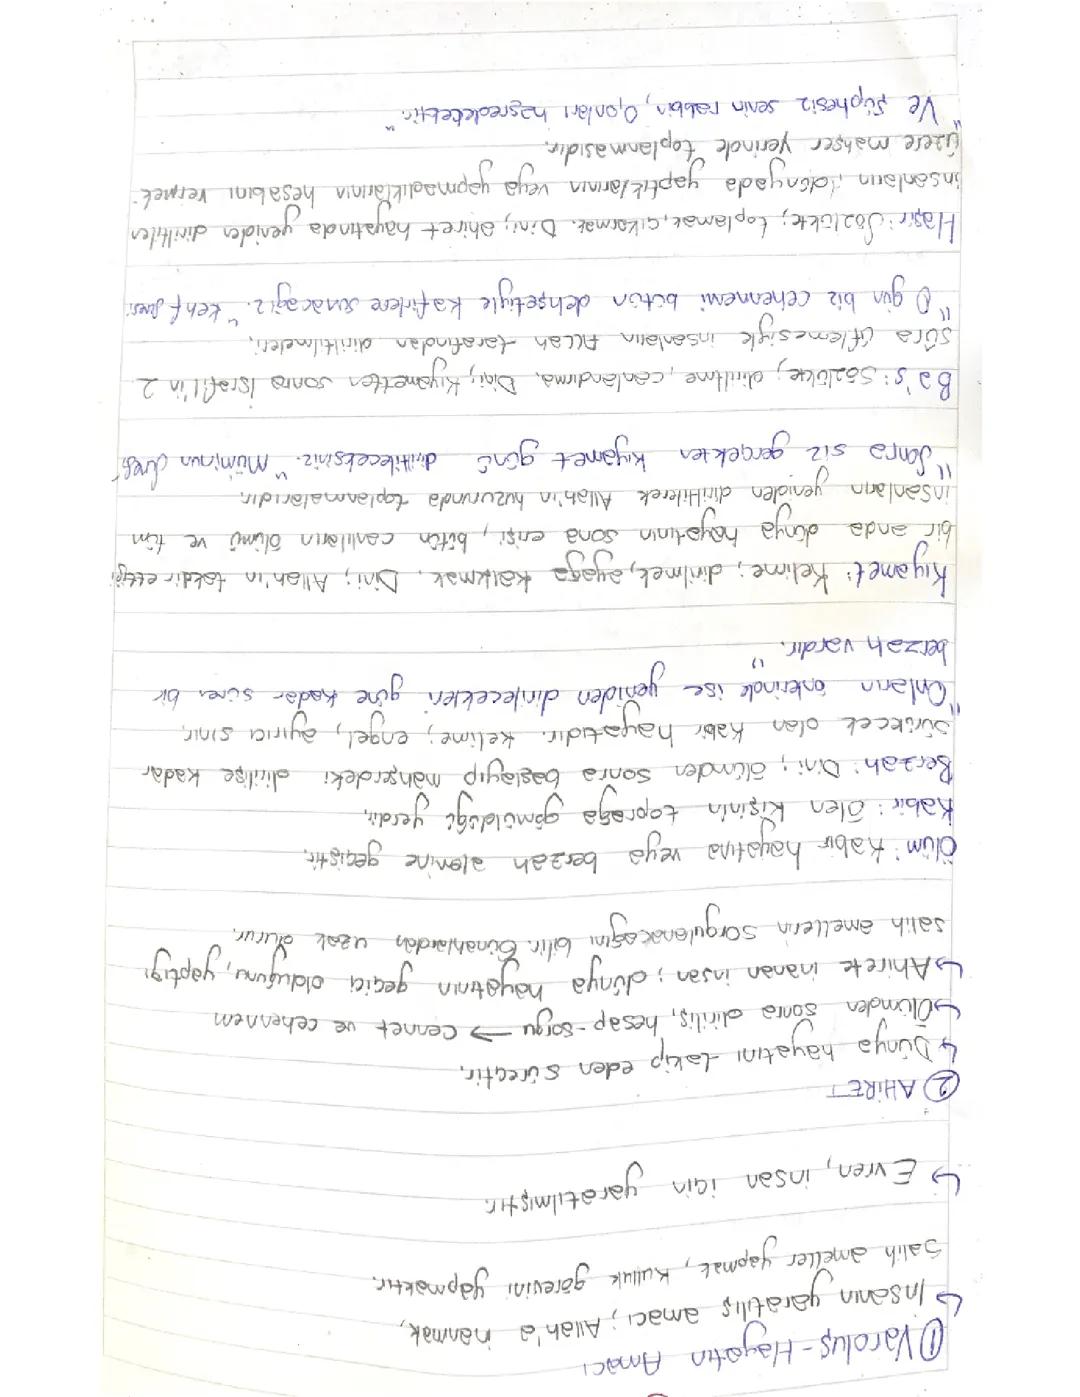 ① Varoluş - Hayatın Amacı
↳ İnsanın yaratılış amacı; Allah'a inanmak,
salih ameller yapmak, kulluk görevini yapmaktır.
↳ Evren, insan için yaratılmıştır.
② AHİRET
↳ Dünya hayatını takip eden süreçtir.
↳ Ölümden sonra diriliş, hesap-sorgu → cennet ve cehennem
↳ Ahirete inanan insan; dünya hayatının geçici olduğunu, yaptığı
salih amellerin sorgulanacağını bilir. Günahlardan uzak durur.
Ölüm: Kabir hayatına veya berzah alemine geçiştir.
Kabir: Ölen kişinin toprağa gömüldüğü yerdir.
Berzah: Dini; ölümden sonra başlayıp mahşerdeki dirilişe kadar
sürecek olan kabir hayatıdır. Kelime; engel, ayırıcı sınır.
"Onların önlerinde ise yeniden dirilecekleri güne kadar süren bir
berzah vardır."
Kıyamet: Kelime; dirilmek, ayağa kalkmak. Dini; Allah'ın takdir ettiği
bir anda dünya hayatının sona erişi, bütün canlıların ölümü ve tüm
insanların yeniden diriltilerek Allah'ın huzurunda toplanmalarıdır.
"Sonra siz gerçekten kıyamet günü diriltileceksiniz." Müminun Suresi
Ba's: Sözlükte; diriltme, canlandırma. Dini; Kıyametten sonra İsrafil'in 2.
sûra üflemesiyle insanların Allah tarafından diriltilmeleri.
"O gün biz cehennemi bütün dehşetiyle kafirlere sunacağız." Kehf Suresi
Haşir: Sözlükte; toplamak, çıkarmak. Dini; ahiret hayatında yeniden diriltilen
insanların, dünyada yaptıklarının veya yapmadıklarının hesabını vermek
üzere mahşer yerinde toplanmasıdır.
"Ve şüphesiz senin rabbin, O, onları haşredecektir."